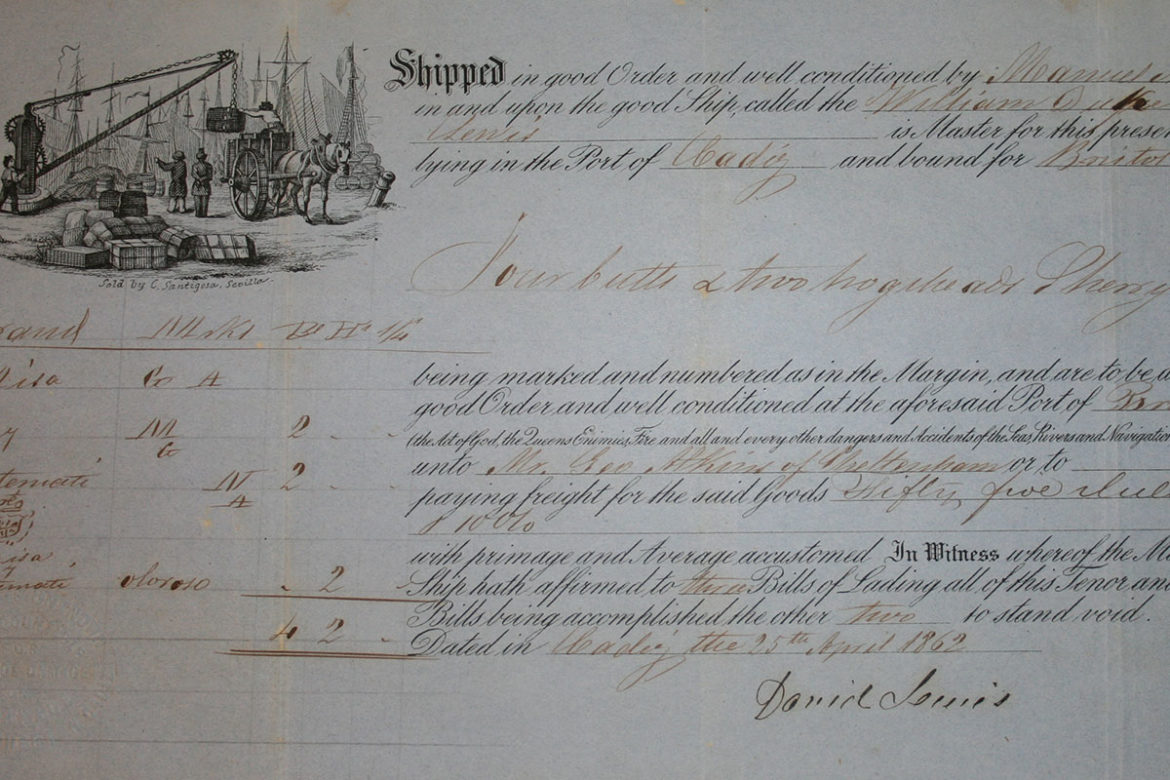 Shipped in good Order and well conditioned by Manuel
in and upon the good Ship, called the William
Lewis is Master for this prese
lying in the Port of Cadiz and bound for Bristol
Four butts & two hogsheads Sherry
Sold by C. Santigosa, Sevilla.
Marks Bs Hs 1/4
Co A
being marked and numbered as in the Margin, and are to be
good Order and well conditioned at the aforesaid Port of
M 2 - -
G
(the Act of God, the Queens Enemies, Fire and all and every other dangers and Accidents of the Seas, Rivers and Navigation
unto Mr. Geo Atkins of Cheltenham or to
N 2
A
paying freight for the said Goods fifty five
with primage and Average accustomed In Witness whereof the Ma
Ship hath affirmed to three Bills of Lading all of this Tenor and
oloroso - 2 -
Bills being accomplished the other two to stand void.
4 2 -
Dated in Cadiz the 25th April 1862
David Lewis